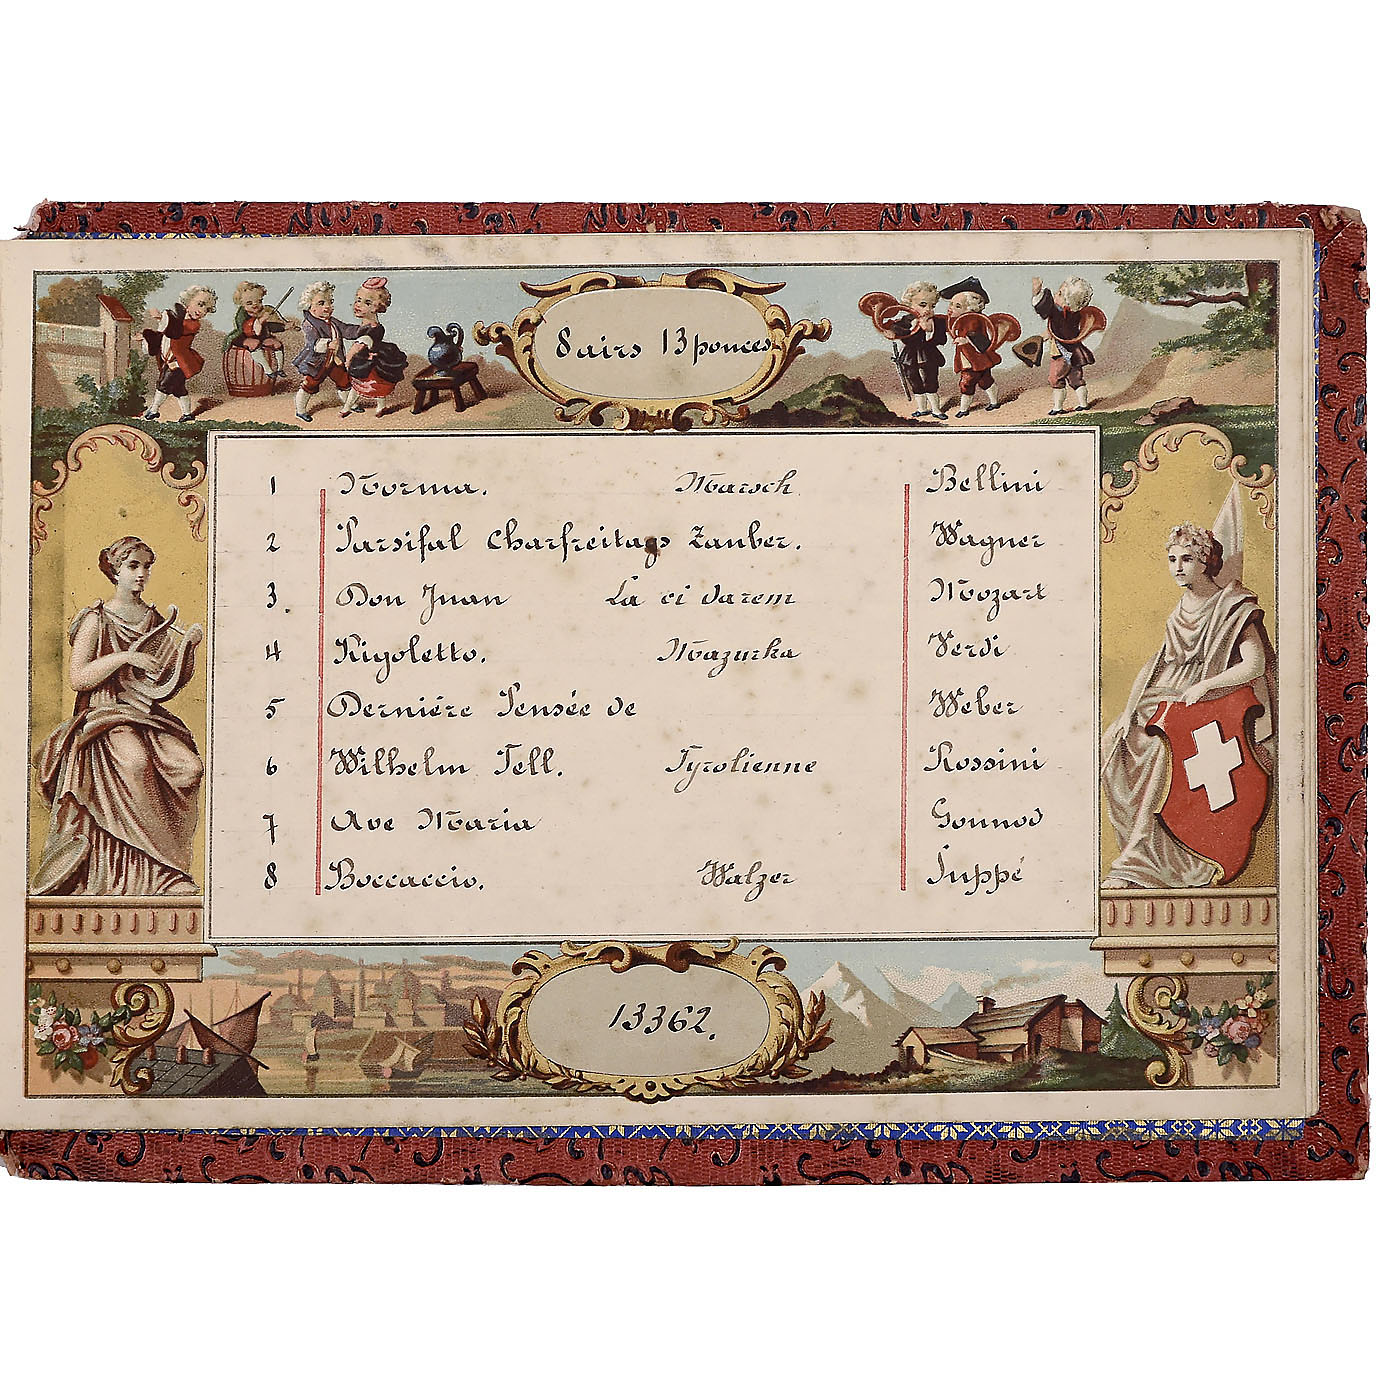 8 airs 13 pouces
1 Norma. Marsch Bellini
2 Parsifal Charfreitags Zauber. Wagner
3. Don Juan La ci darem Mozart
4 Rigoletto. Mazurka Verdi
5 Derniére Pensée de Weber
6 Wilhelm Tell. Tyrolienne Rossini
7 Ave Maria Gounod
8 Boccaccio. Walzer Suppé
13362.